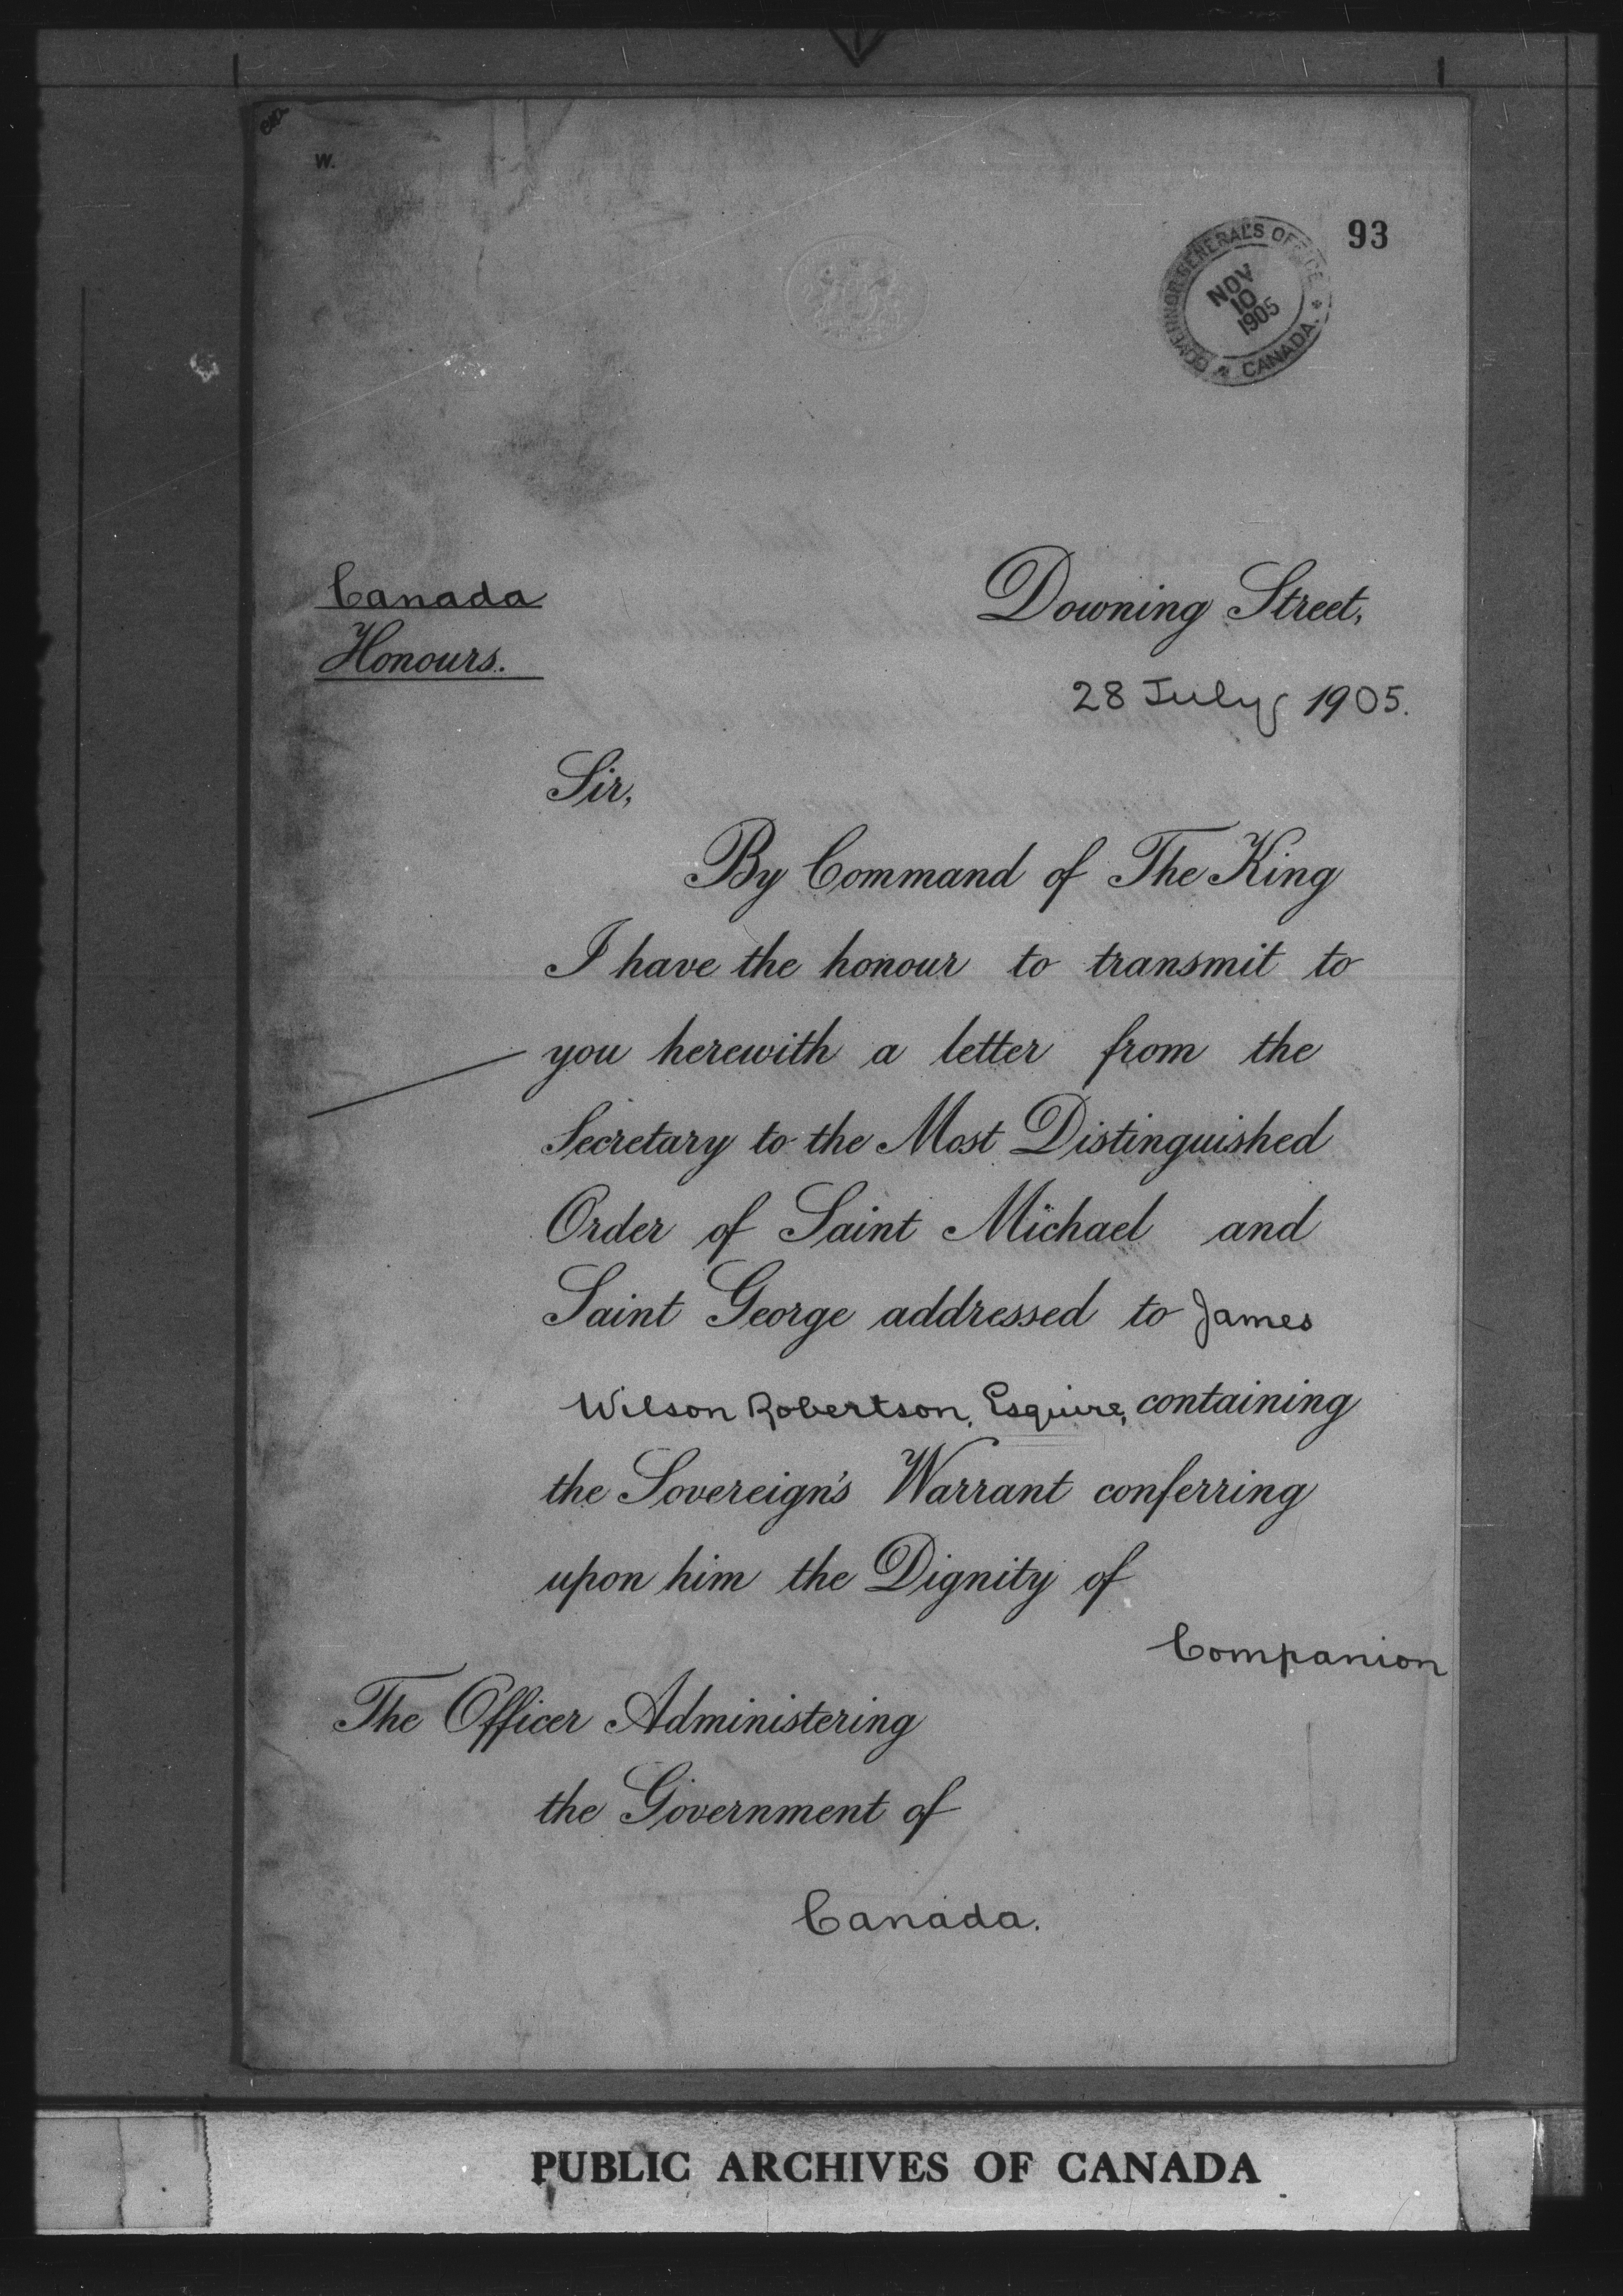 W.
93
GOVERNOR GENERAL'S OFFICE
NOV
10
1905
* CANADA. *
Canada
Honours.
Downing Street,
28 July 1905.
Sir,
By Command of The King
I have the honour to transmit to
you herewith a letter from the
Secretary to the Most Distinguished
Order of Saint Michael and
Saint George addressed to James
Wilson Robertson, Esquire, containing
the Sovereign's Warrant conferring
upon him the Dignity of
Companion
The Officer Administering
the Government of
Canada.
PUBLIC ARCHIVES OF CANADA